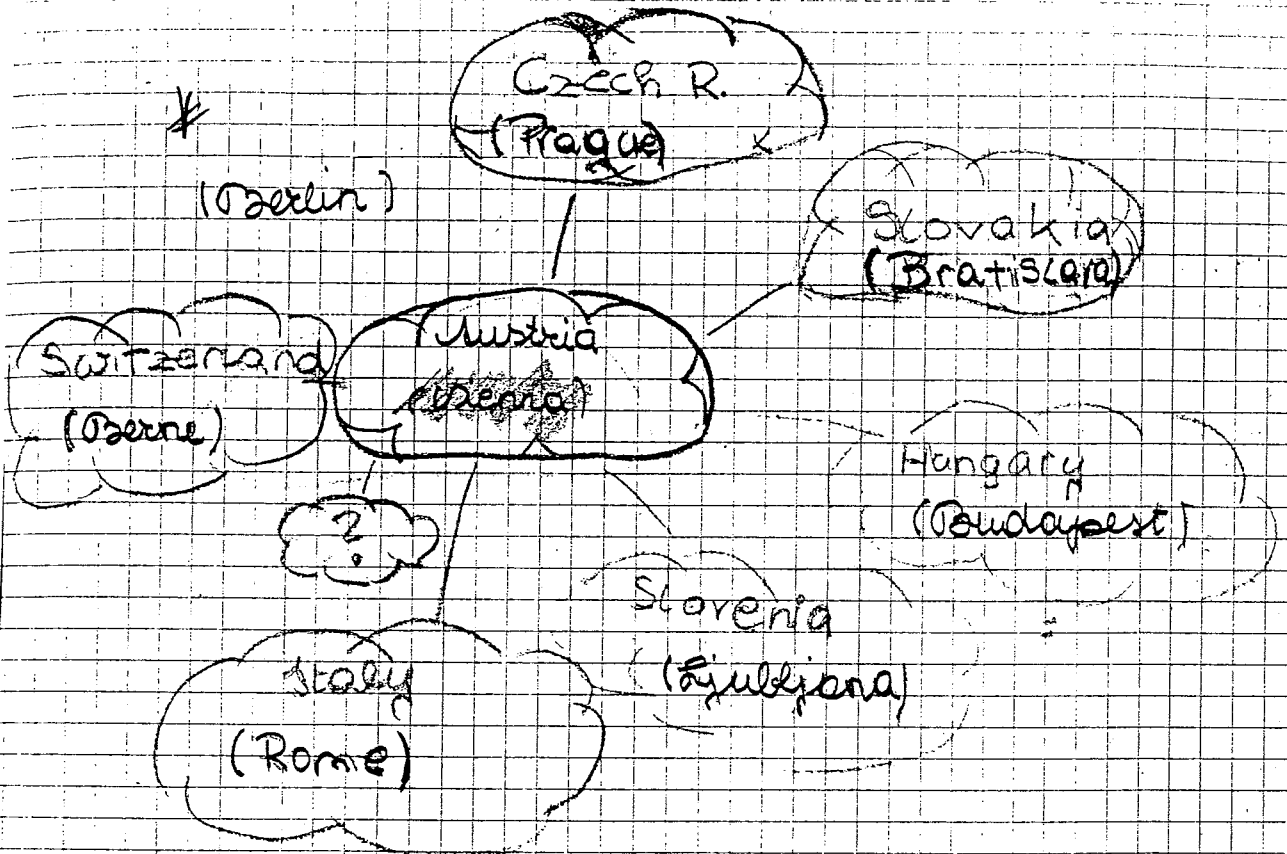 Czech R.
(Prague)
*
(Berlin)
Slovakia
(Bratislava)
Austria
Switzerland
(Berne)
Hungary
(Budapest)
?
Slovenia
(Ljubljana)
Italy
(Rome)